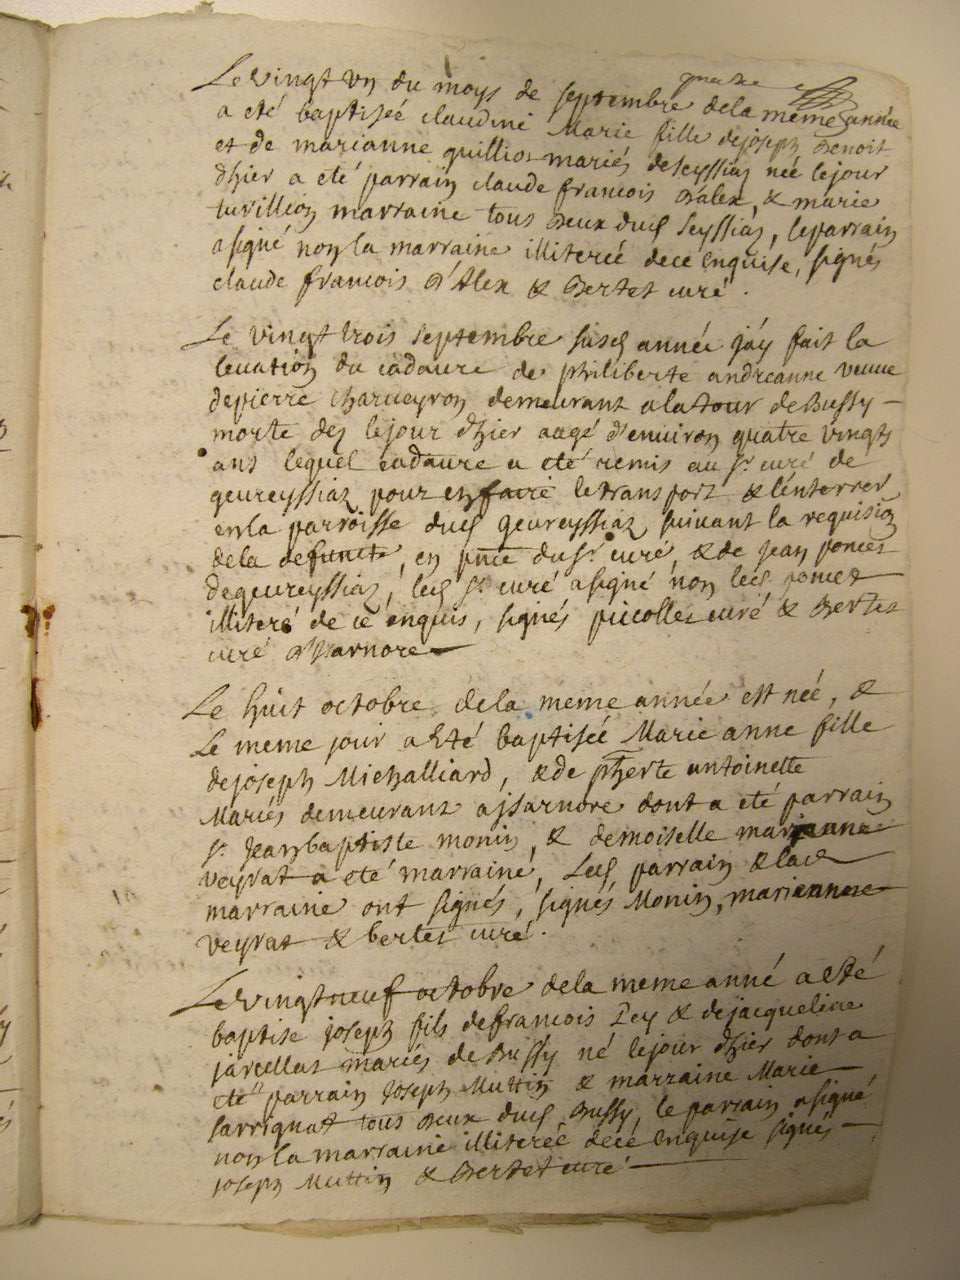 Le vingt un du moys de septembre de la meme année
a eté baptiseé claudine Marie fille de joseph Benoit
et de marianne quilliot mariés de seyssiaz née le jour
d'hier a eté parrain claude francois D'alex, & marie
turillion marraine tous deux dud seyssiaz, le parrain
a signé non la marraine illitereé de ce enquise, signés
claude francois D'Alex & Bertet curé.
Le vingt trois septembre susd année j'ay fait la
levation du cadavre de philiberte andreanne veuve
de pierre charveyron demeurant a la tour de Bussy
morte des le jour d'hier aagé d'environ quatre vingts
ans lequel cadavre a eté remis au sr. curé de
gevreyssiaz pour en faire le transport & l'enterrer
en la parroisse dud gevreyssiaz suivant la requision
de la defuncte, en pnce du sr. curé, & de jean poncet
de gevreyssiaz, led sr. curé a signé non led poncet
illiteré de ce enquis, signés piccollet curé & Bertet
curé d'Isarnore
Le huit octobre de la meme année est née, &
Le meme jour a Eté baptiseé Marie anne fille
de joseph Michalliard, & de pherte antoinette
Mariés demeurant a jsarnore dont a eté parrain
sr. jean baptiste monin, & demoiselle marianne
veyrat a eté marraine, Led parrain & lad
marraine ont signés, signés Monin, marianne
veyrat & bertet curé.
Le vingt neuf octobre de la meme anné a eté
baptise joseph fils de francois Pey & de jacqueline
javellat mariés de Bussy né le jour d'hier dont a
eté parrain Joseph Muttin & marraine Marie
sarrignat tous deux dud Bussy, le parrain a signé
non la marraine illitereé de ce enquise signés
joseph Muttin & Bertet curé